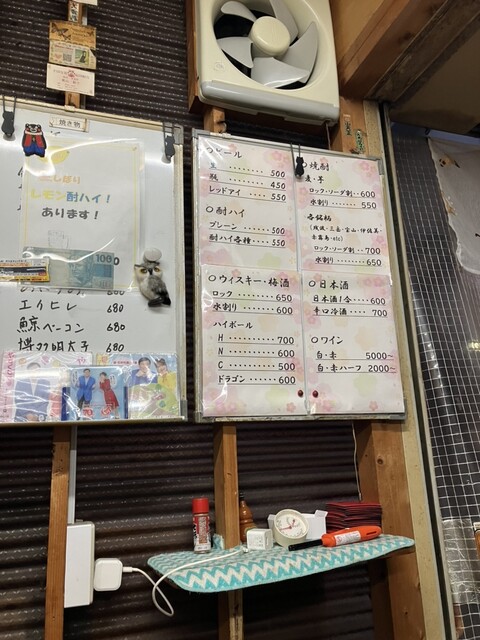 焼き物
生しぼり
レモン酎ハイ!
あります!
100
エイヒレ 680
鯨ベーコン 680
博多明太子 680
○ビール
生 ········ 500
瓶 ········ 450
レッドアイ ······ 550
○酎ハイ
プレーン ······ 500
酎ハイ各種 ····· 550
○ウィスキー・梅酒
ロック ······· 650
水割り ······· 600
ハイボール
H ········ 700
N ········ 600
C ········ 500
ドラゴン ······ 600
○焼酎
麦・芋
ロック・ソーダ割··600
水割り ······ 550
各銘柄
ロック・ソーダ割··700
水割り ······ 650
○日本酒
日本酒1合 ····600
辛口冷酒 ·····700
○ワイン
白・赤 5000~
白・赤ハーフ 2000~